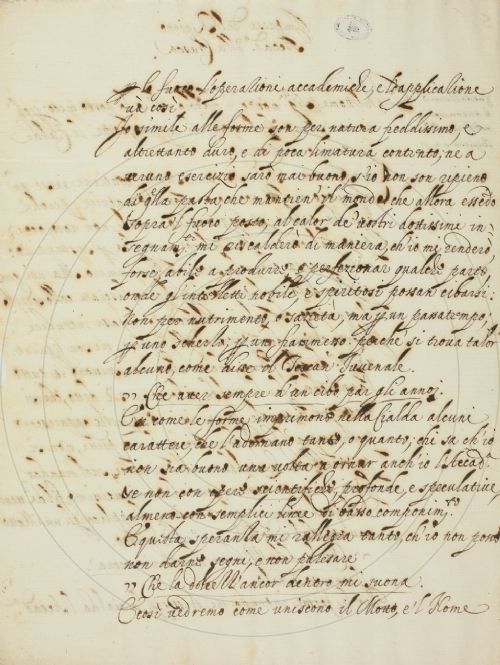 p le sucre l'operazioni accademiche, e l'applicazione
va così
Io simile alle forme son per natura freddissimo, e
altrettanto duro, e di poca limatura contento; ne a
veruno esercizio sarò mai buono, s'io non son ripieno
di qlla pasta che mantien' il mondo che allora essedo
sopra 'l fuoco posto, al calor de' vostri dottissimi in-
segnam.ti mi riscalderò di maniera, ch'io me renderò
forse abile a produrre, e perfezionar qualche parto
onde gl'intelletti nobili, e spiritosi possan cibarsi:
Non per nutrimento, o sazietà, ma p un passatempo,
p uno scherzo, p un fracimeno: perche si trova talor
alcuno, come disse il Toscan Iuvenale.
,, Che aver sempre d'un cibo par gli annoj.
E si come le forme imprimono nella Cialda alcuni
caratteri, che l'adornano tanto, o quanto; chi sa ch'io
non sia buono una volta a ornar anch'io l'Accad.a
se non con opere scientifiche, profonde e speculative
almeno con semplici linee di basso componim.to
E questa speranza mi rallegra tanto, ch'io non posso
non darne segni, e non palesare
,, Che la dolcezza ancor dentro mi suona.
E così vedremo come uniscono il Motto, e 'l Nome